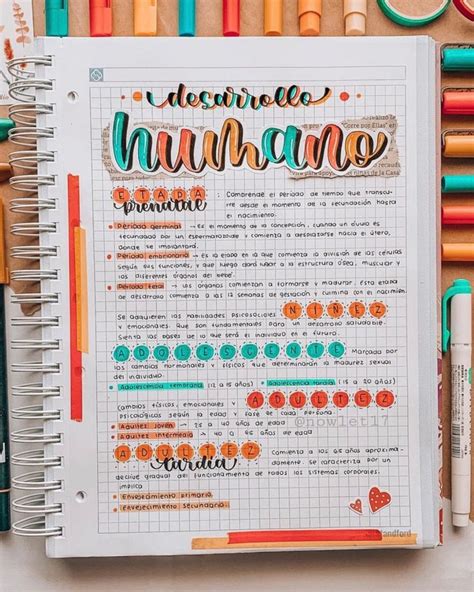 desarrollo
humano
ETAPA : Comprende el período de tiempo que transcu-
prenatal rre desde el momento de la fecundación hasta
el nacimiento.
Período germinal → Es el momento de la concepción, cuando un óvulo es
fecundado por un espermatozoide y comienza a desplazarse hacia el útero,
donde se implantará.
Período embrionario → Es la etapa en la que comienza la división de las células
según sus funciones, y que luego dará lugar a la estructura ósea, muscular y
los diferentes órganos del bebé.
Período fetal → los órganos comienzan a formarse y madurar. Esta etapa
de desarrollo comienza a las 12 semanas de gestación y culmina con el nacimiento.
NIÑEZ
Se adquieren las habilidades psicosociales
y emocionales que son fundamentales para un desarrollo saludable. Sienta
las bases de lo que será el individuo en el futuro.
ADOLESCENTE Marcada por
los cambios hormonales y emocionales que determinarán la madurez sexual
del individuo.
Adolescencia temprana (12 a 15 años) Adolescencia tardía (15 a 20 años)
ADULTEZ
Cambios físicos, emocionales y
psicológicos según la edad y fase de cada persona.
Adultez joven → 25 a 40 años de edad
Adultez intermedia → 40 a 65 años de edad
@nowletii
ADULTEZ Comienza a los 65 años aproxima-
tardía damente. Se caracteriza por un
declive gradual del funcionamiento de todos los sistemas corporales.
Implica
Envejecimiento primario.
Envejecimiento secundario.